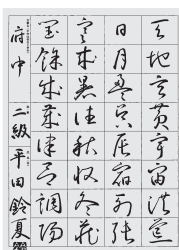 天地玄黄宇宙洪荒
日月盈昃辰宿列張
寒来暑往秋収冬蔵
閏餘成歳律呂調陽
府中 二級 平田鈴夏